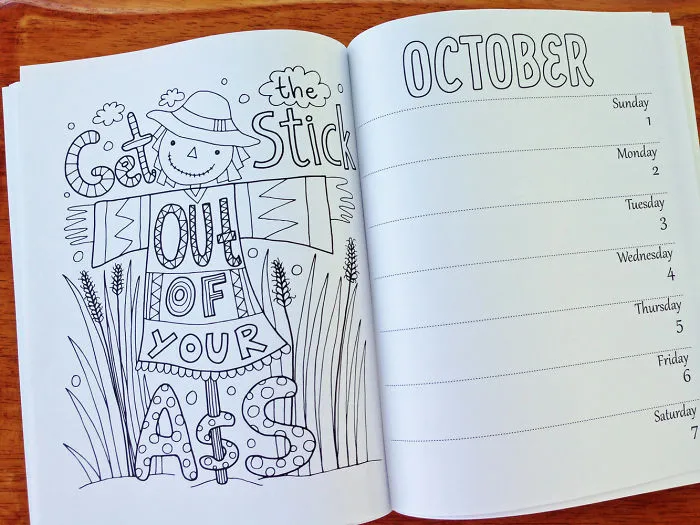 Get the Stick
OUt
OF
YOUR
ASS
OCTOBER
Sunday
1
Monday
2
Tuesday
3
Wednesday
4
Thursday
5
Friday
6
Saturday
7